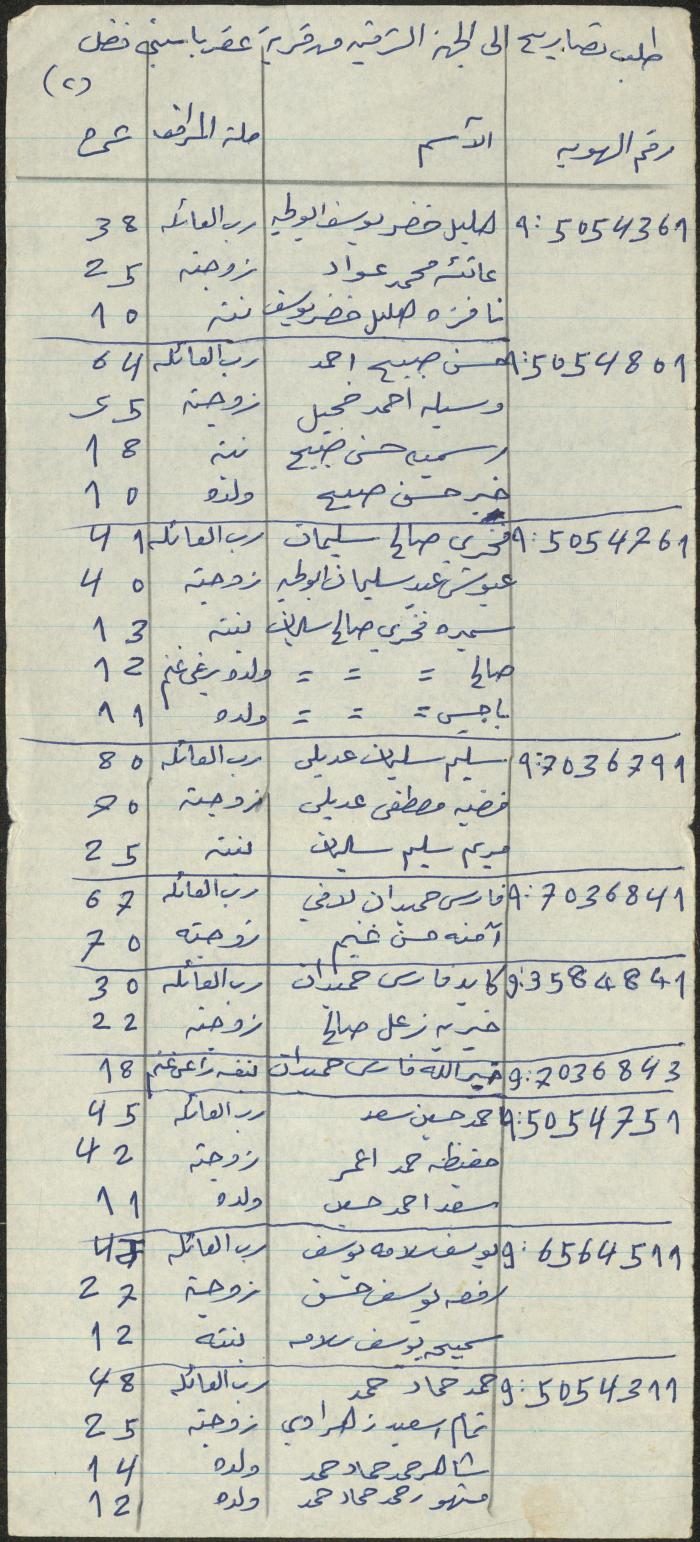 طلب تصاريح الى الجهة الشرقيه من قرية عقربا سبع فضل
(٢)
رقم الهويه الآسم صلة المرافق عمره
9:5054361 خليل خضر يوسف ابوطه رب العائله 38
عائشه محمد عواد زوجته 25
نافزه خليل خضر يوسف بنته 10
9:5054801 حسن صبيح احمد رب العائله 64
وسيله احمد زوجته 55
رسميه حسن صبيح بنته 18
خير حسن صبيح ولده 10
9:5054761 فخري صالح سليمان رب العائله 41
عيوش عيد سليمان ابوطه زوجته 40
سميره فخري صالح سليمان بنته 13
صالح = = = ولده يرعى غنم 12
باجس = = = ولده 11
9:7036791 سليم سليمان عديلي رب العائله 80
فضيه مصطفى عديلي زوجته 70
مريم سليم سليمان بنته 25
9:7036841 فارس حمدان لافي رب العائله 67
آمنه حسن غنيم زوجته 70
9:3584841 كايد فارس حمدان رب العائله 30
خيريه زعل صالح زوجته 22
9:7036843 خيرالله فارس حمدان نفسه راعي غنم 18
9:5054751 احمد حسين سعد رب العائله 45
حفيظه حمد زوجته 42
سعد احمد حسين ولده 11
9:6564511 يوسف سلامه يوسف رب العائله 45
رفعه يوسف حسن زوجته 27
سميحه يوسف سلامه بنته 12
9:5054311 حمد حماد حمد رب العائله 48
تمام اسعيد زهراوي زوجته 25
شاهر حمد حماد حمد ولده 14
مشهور حمد حماد حمد ولده 12